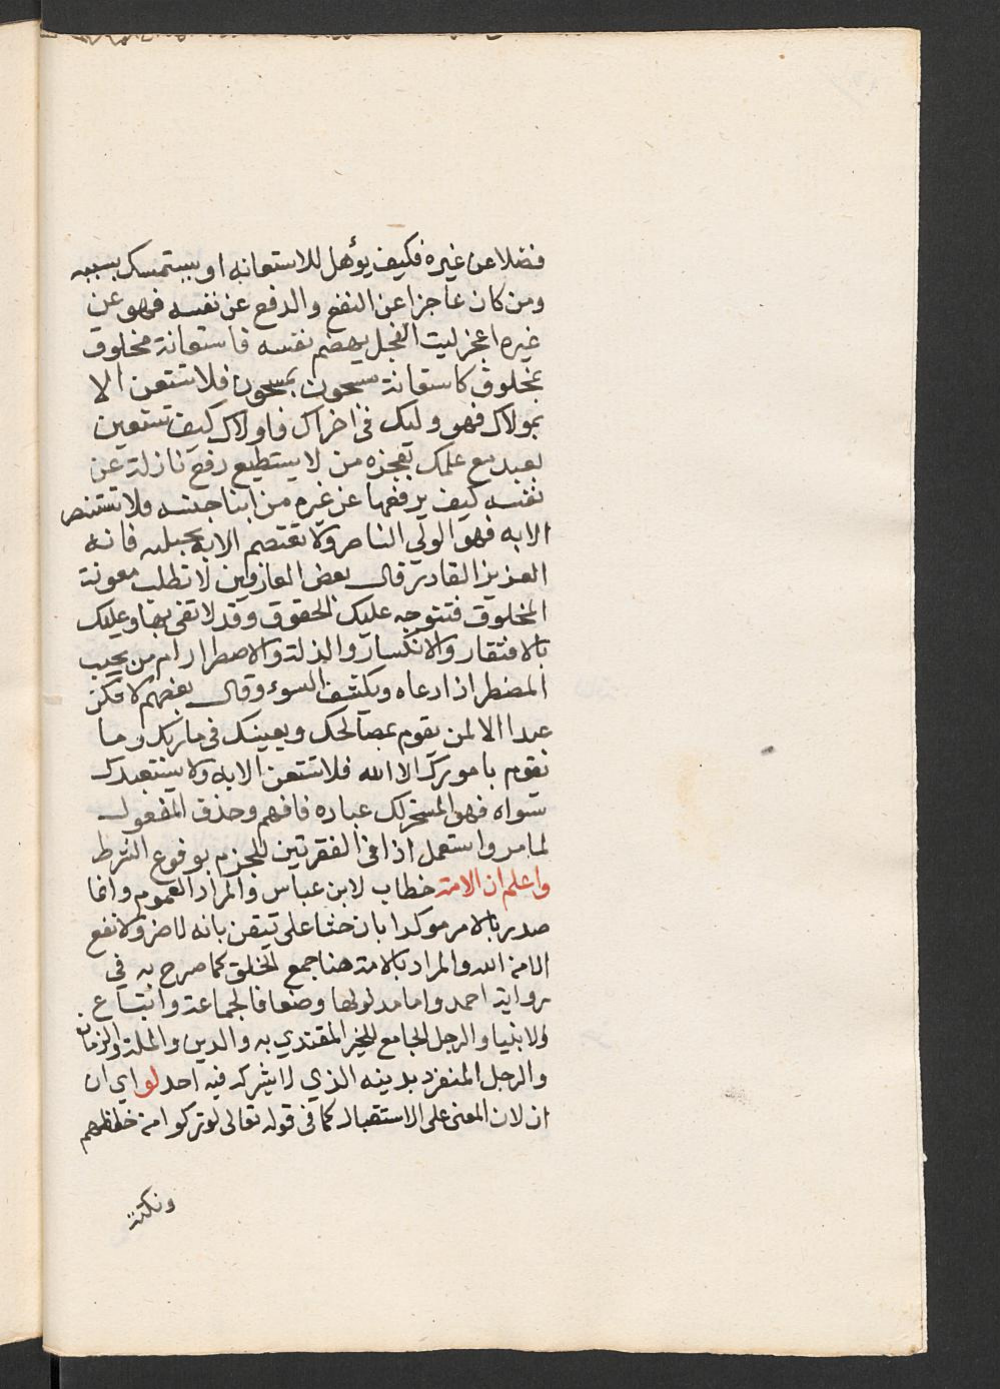 فضلا عن غيره فكيف يؤهل للاستعانه او يستمسك بسببه
ومن كان عاجزا عن النفع والدفع عن نفسه فهو عن
غيره اعجز ليت الفحل يهضم نفسه فاستعانة مخلوق
بمخلوق كاستعانة مسجون بمسجون فلا تستعن الا
بمولاك فهو وليك في اخراك واولاك كيف تستعين
بعبد مع علمك بعجزه من لا يستطيع دفع نازلة عن
نفسه كيف يرفعها عن غيره من ابنا جنسه ولا تستنصر
الابه فهو الولي الناصر ولا تعتصم الا به بحبله فانه
العزيز القادر قال بعض العارفين لا تطلب معونة
المخلوق فتتوجه عليك الحقوق وقد لا تفي بها وعليك
بالافتقار والانكسار والذلة والاضطرار ام من يجيب
المضطر اذا دعاه ويكشف السوء وقال بعضهم لا تكن
عبدا الا لمن يقوم بمصالحك ويعينك في ماربك وما
يقوم بامورك الا الله فلا تستعن الا به ولا يستعبدك
سواه فهو المسخر لك عباده فافهم وحذف المفعول
لما مر واستعمل اذا في الفقرتين للجزم بوقوع الشرط
واعلم ان الامة خطاب لابن عباس والمراد العموم وانما
صدر بالامر موكدا بان حثا على تيقن بانه لا ضر ولا نفع
الا من الله والمراد بالامة هنا جمع الخلق كما صرح به في
رواية احمد واما مدلولها وضعا فالجماعة واتباع
ولانبيا والرجل الجامع للخير المقتدي به والدين والملة والزمان
والرجل المنفرد بدينه الذي لا يشركه فيه احد لو اي ان
ان لان المعنى على الاستقبال كما في قوله تعالى لو تركوا من خلفهم
ونكتة